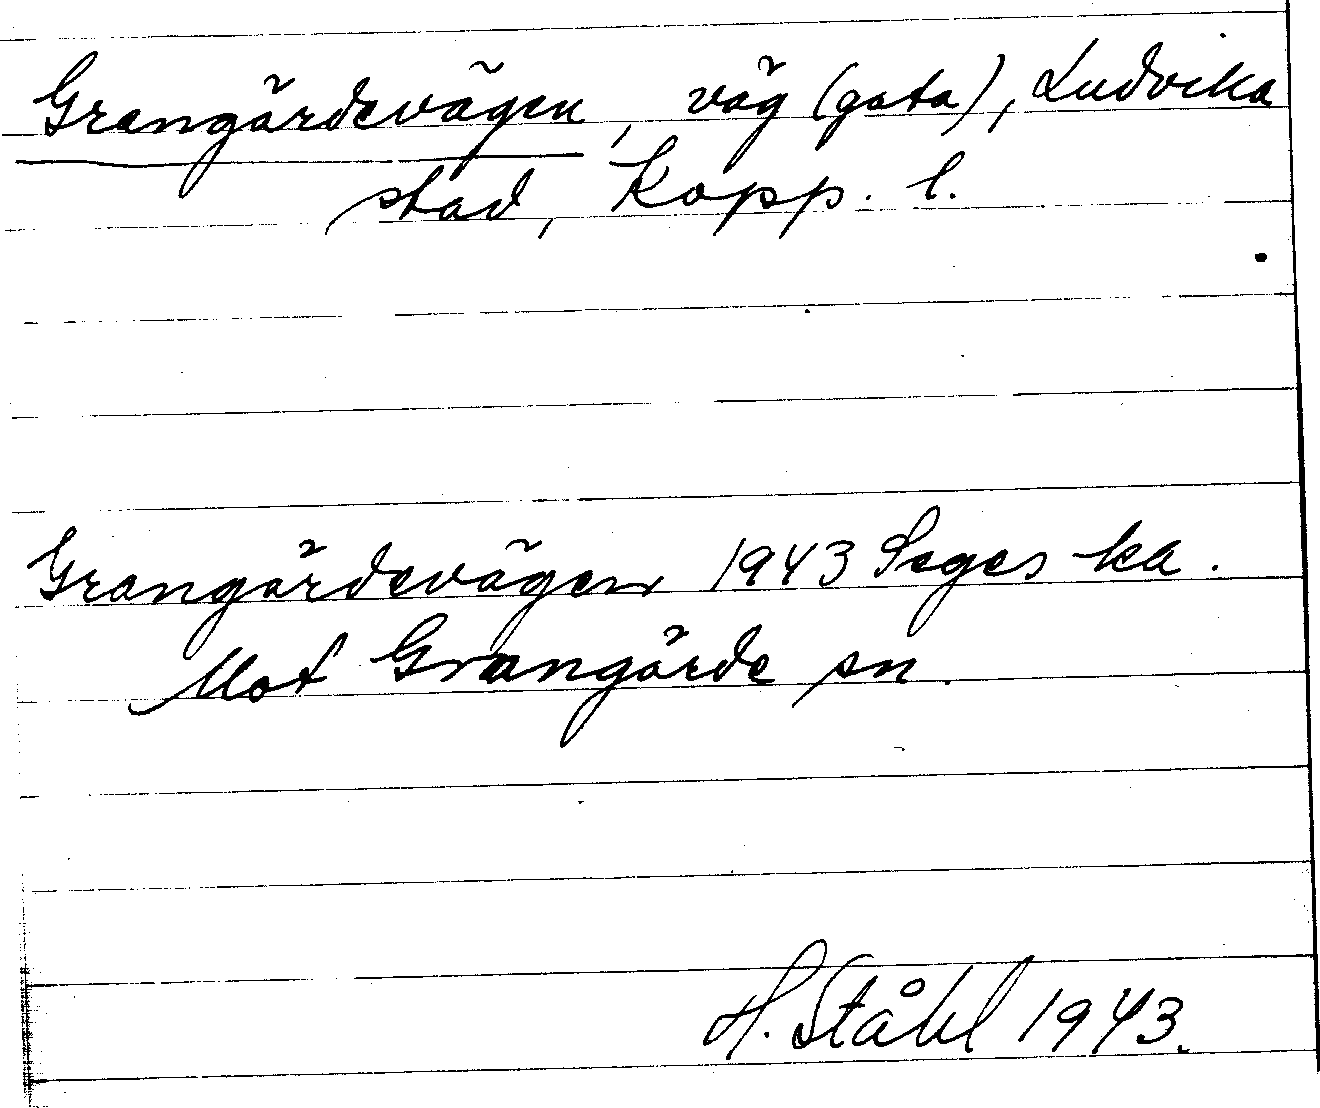 Grangärdevägen, väg (gata), Ludvika
stad, Kopp. l.
Grangärdevägen 1943 Seges ka.
Mot Grangärde sn.
H. Ståhl 1943.